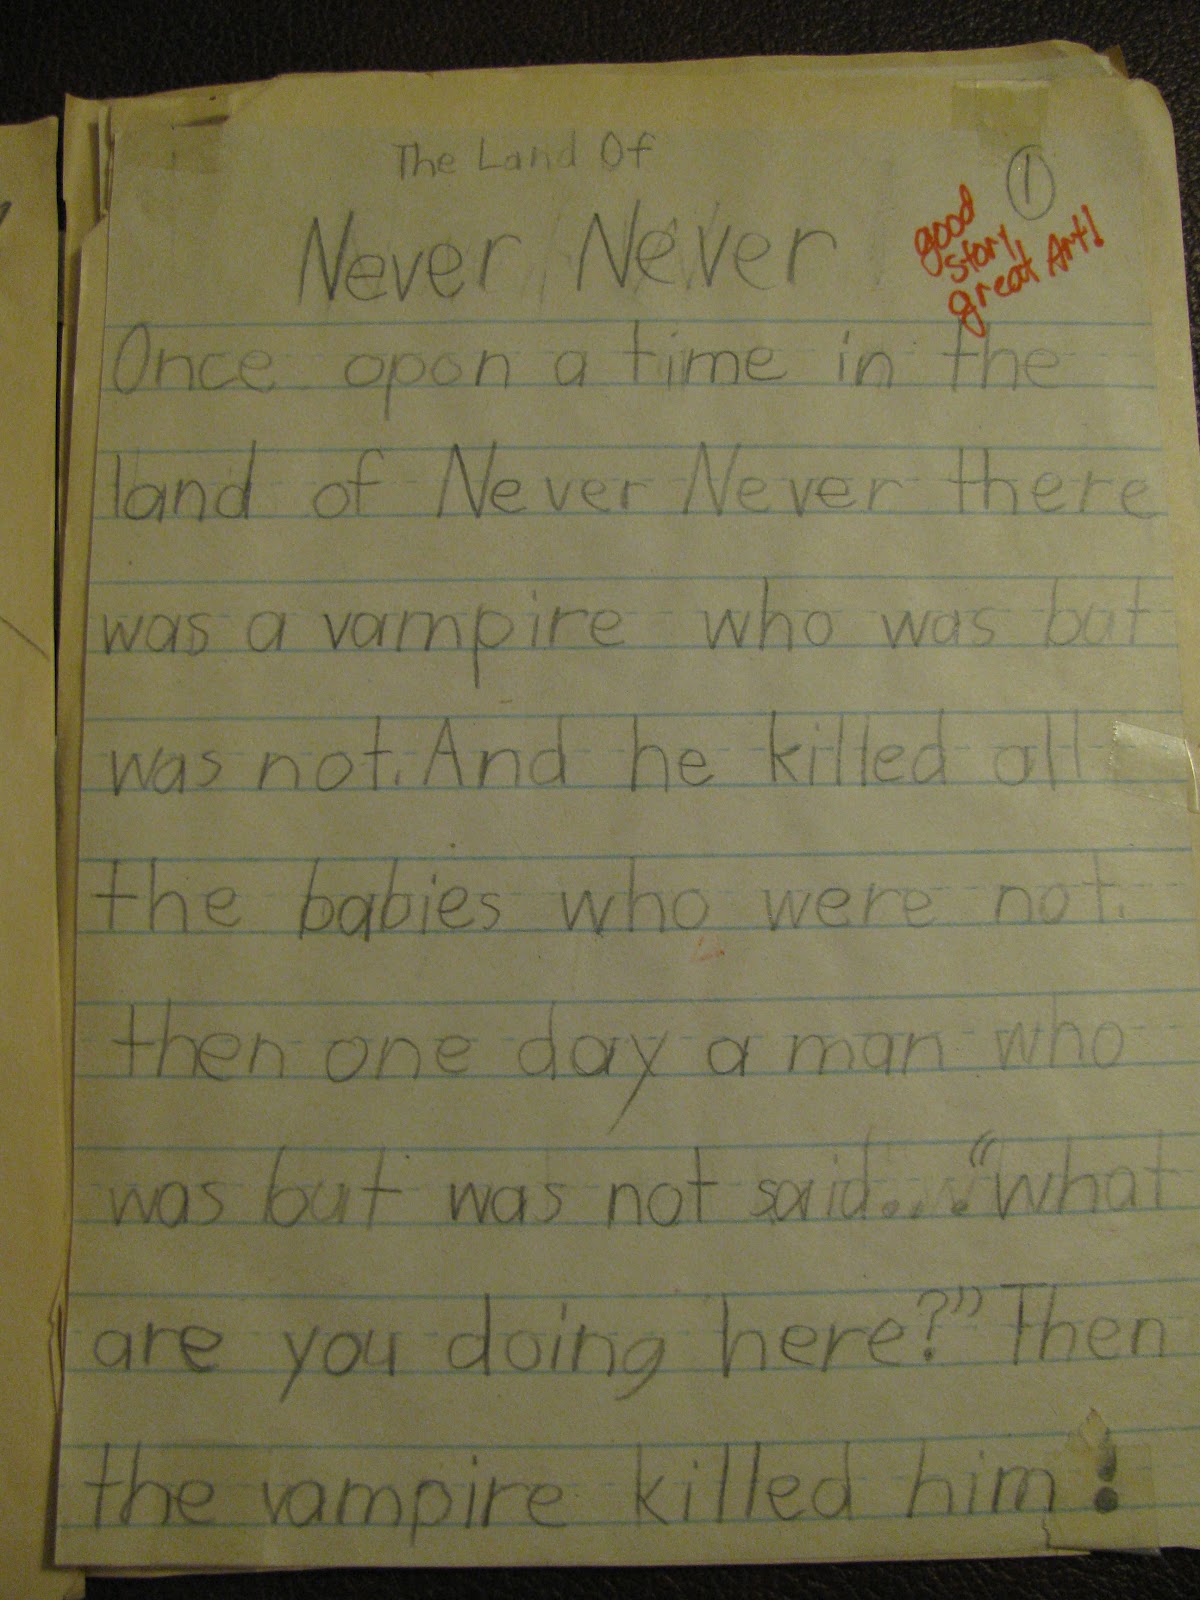 The Land Of
Never Never
1
good
story,
great Art!
Once opon a time in the
land of Never Never there
was a vampire who was but
was not. And he killed all
the babies who were not.
then one day a man who
was but was not said... "what
are you doing here?" Then
the vampire killed him!